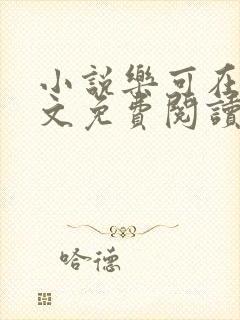 小說樂可在
文免費閱讀
哈德